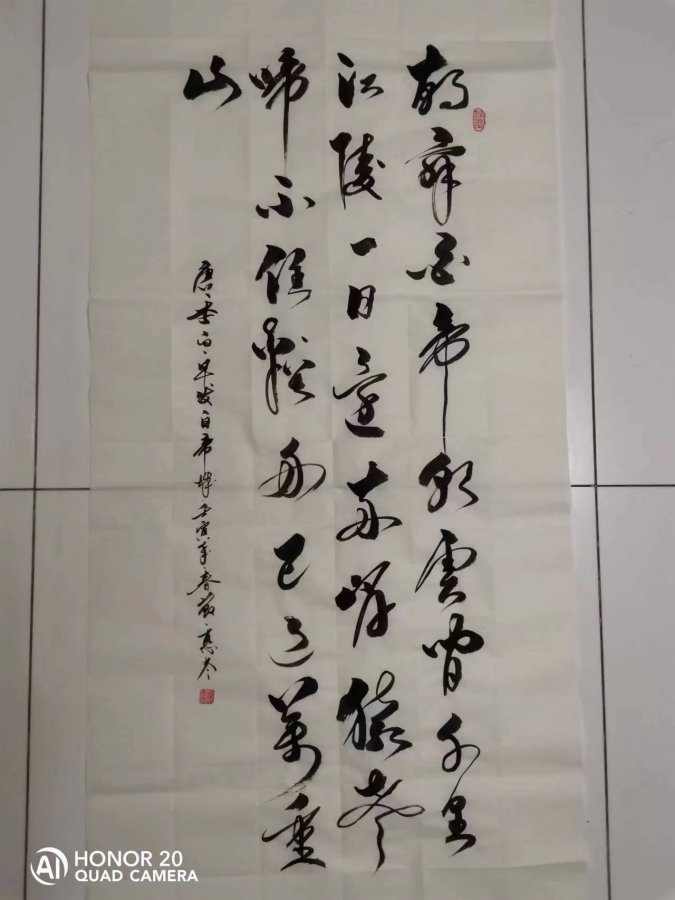 朝辞白帝彩雲間千里
江陵一日還两岸猿聲
啼不住輕舟已过萬重
山
唐李白早发白帝城壬寅年春
HONOR 20
QUAD CAMERA